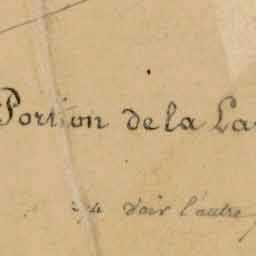 Portion de la La
voir l'autre